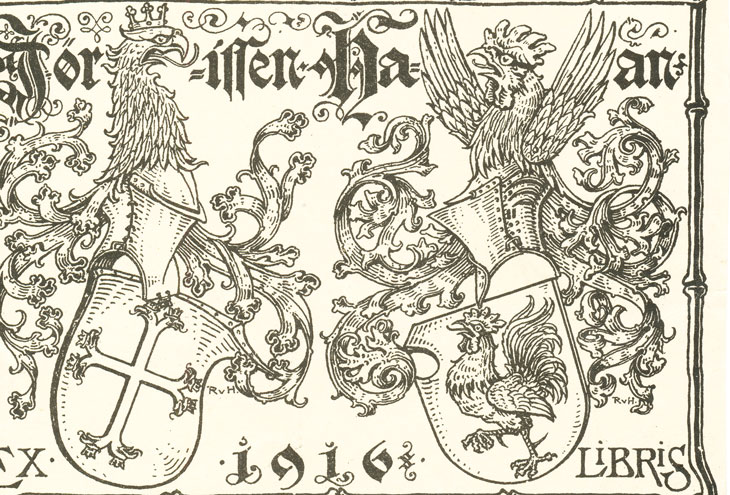 Jör=issen=Ha=an
RvH.
RvH.
EX · 1916 · LiBRiS